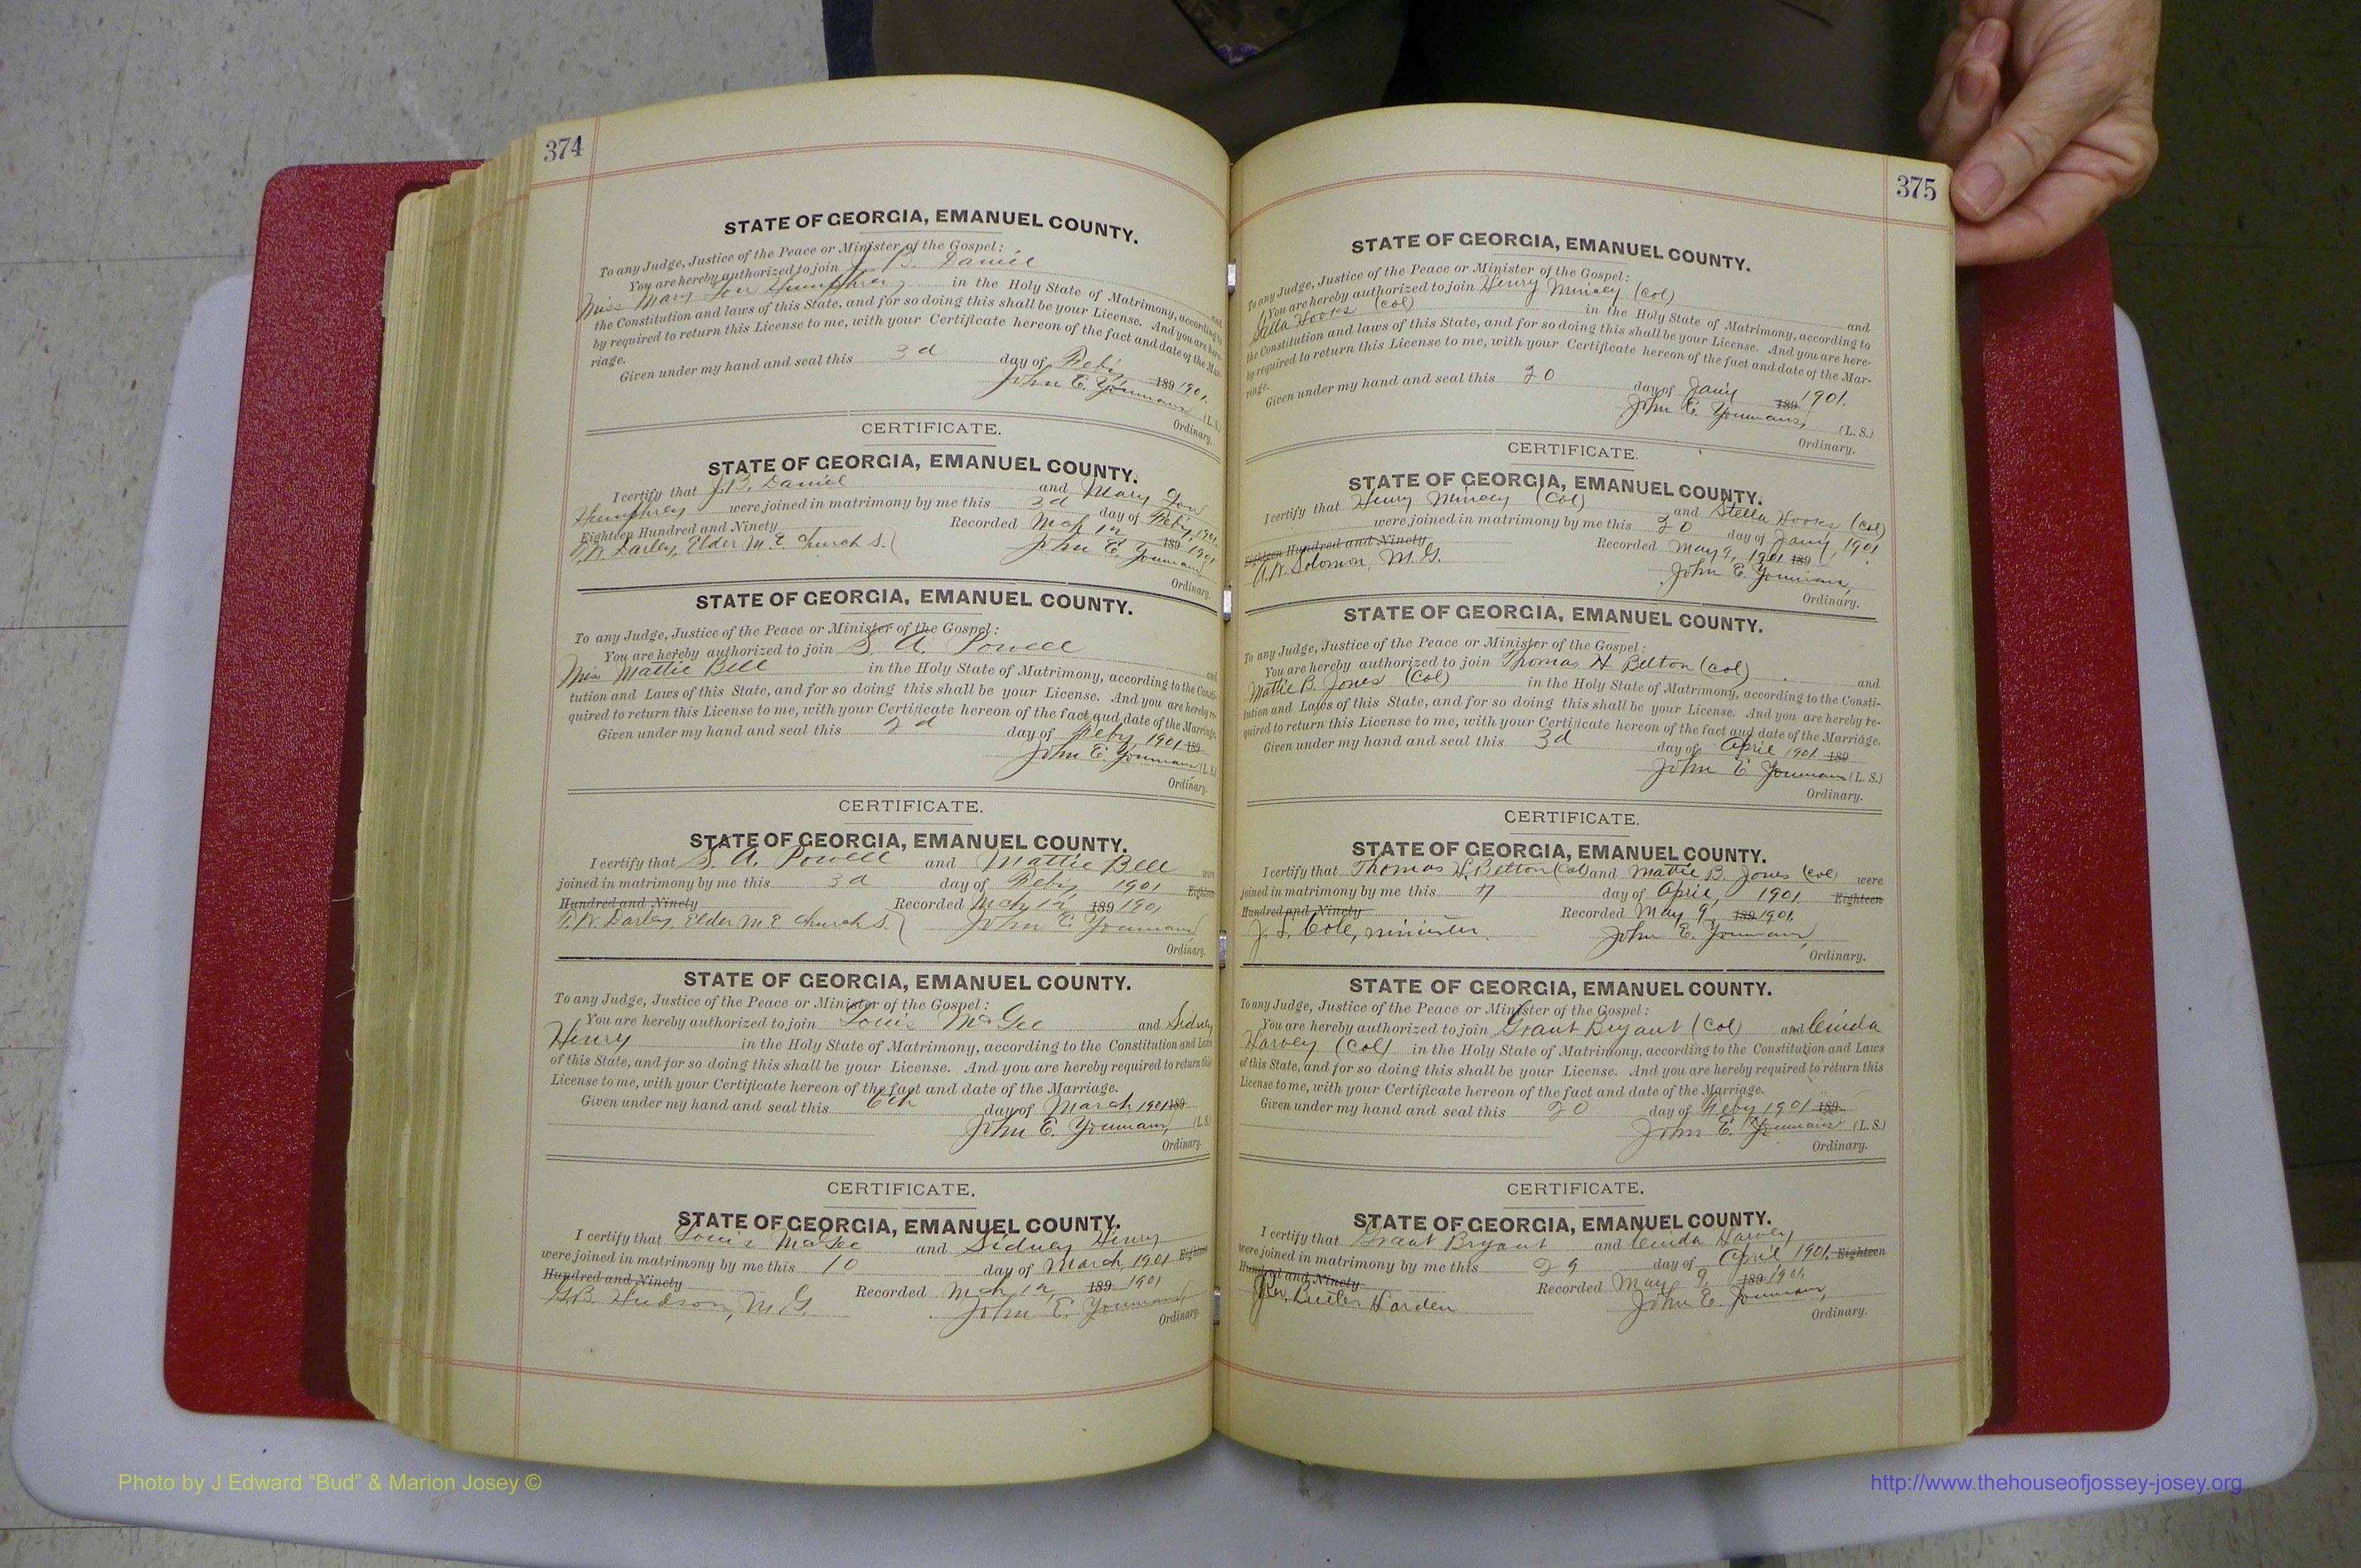 374
STATE OF GEORGIA, EMANUEL COUNTY.
To any Judge, Justice of the Peace or Minister of the Gospel:
You are hereby authorized to join J. B. Daniel and
Miss Mary Lou Humphrey in the Holy State of Matrimony, according to
the Constitution and laws of this State, and for so doing this shall be your License. And you are here-
by required to return this License to me, with your Certificate hereon of the fact and date of the Mar-
riage.
Given under my hand and seal this 3d day of Feby 189 1901.
John E. Youmans (L. S.)
Ordinary.
CERTIFICATE.
STATE OF GEORGIA, EMANUEL COUNTY.
I certify that J. B. Daniel and Mary Lou
Humphrey were joined in matrimony by me this 3d day of Feby, 1901
Eighteen Hundred and Ninety Recorded Mch 12 189 1901
Darley, Elder M. E. Church S. John E. Youmans
Ordinary.
STATE OF GEORGIA, EMANUEL COUNTY.
To any Judge, Justice of the Peace or Minister of the Gospel:
You are hereby authorized to join S. A. Powell and
Miss Mattie Bell in the Holy State of Matrimony, according to the Consti-
tution and Laws of this State, and for so doing this shall be your License. And you are hereby re-
quired to return this License to me, with your Certificate hereon of the fact and date of the Marriage.
Given under my hand and seal this 2d day of Feby, 1901 189
John E. Youmans (L. S.)
Ordinary.
CERTIFICATE.
STATE OF GEORGIA, EMANUEL COUNTY.
I certify that S. A. Powell and Mattie Bell were
joined in matrimony by me this 3d day of Feby, 1901 Eighteen
Hundred and Ninety Recorded Mch 12, 189 1901
Darley, Elder M. E. Church S. John E. Youmans
Ordinary.
STATE OF GEORGIA, EMANUEL COUNTY.
To any Judge, Justice of the Peace or Minister of the Gospel:
You are hereby authorized to join Louis McGee and Sidney
Henry in the Holy State of Matrimony, according to the Constitution and Laws
of this State, and for so doing this shall be your License. And you are hereby required to return this
License to me, with your Certificate hereon of the fact and date of the Marriage.
Given under my hand and seal this 6th day of March 1901 189
John E. Youmans, (L. S.)
Ordinary.
CERTIFICATE.
STATE OF GEORGIA, EMANUEL COUNTY.
I certify that Louis McGee and Sidney Henry
were joined in matrimony by me this 10 day of March, 1901 Eighteen
Hundred and Ninety Recorded Mch 12, 189 1901
G. B. Hudson, M. G. John E. Youmans
Ordinary.
375
STATE OF GEORGIA, EMANUEL COUNTY.
To any Judge, Justice of the Peace or Minister of the Gospel:
You are hereby authorized to join Henry Mincey (Col) and
Stella Hooks (Col) in the Holy State of Matrimony, according to
the Constitution and laws of this State, and for so doing this shall be your License. And you are here-
by required to return this License to me, with your Certificate hereon of the fact and date of the Mar-
riage.
Given under my hand and seal this 20 day of Jany 189 1901.
John E. Youmans, (L. S.)
Ordinary.
CERTIFICATE.
STATE OF GEORGIA, EMANUEL COUNTY.
I certify that Henry Mincey (Col) and Stella Hooks (Col)
were joined in matrimony by me this 20 day of Jany, 1901
Eighteen Hundred and Ninety Recorded May 9, 1901 189
Solomon, M. G. John E. Youmans,
Ordinary.
STATE OF GEORGIA, EMANUEL COUNTY.
To any Judge, Justice of the Peace or Minister of the Gospel:
You are hereby authorized to join Thomas H Belton (Col) and
Mattie B. Jones (Col) in the Holy State of Matrimony, according to the Consti-
tution and Laws of this State, and for so doing this shall be your License. And you are hereby re-
quired to return this License to me, with your Certificate hereon of the fact and date of the Marriage.
Given under my hand and seal this 3d day of April 1901 189
John E Youmans (L. S.)
Ordinary.
CERTIFICATE.
STATE OF GEORGIA, EMANUEL COUNTY.
I certify that Thomas H. Belton (Col) and Mattie B. Jones (Col) were
joined in matrimony by me this 7 day of April, 1901. Eighteen
Hundred and Ninety Recorded May 9, 189 1901.
Cole, minister. John E. Youmans,
Ordinary.
STATE OF GEORGIA, EMANUEL COUNTY.
To any Judge, Justice of the Peace or Minister of the Gospel:
You are hereby authorized to join Grant Bryant (Col) and Cinda
Harvey (Col) in the Holy State of Matrimony, according to the Constitution and Laws
of this State, and for so doing this shall be your License. And you are hereby required to return this
License to me, with your Certificate hereon of the fact and date of the Marriage.
Given under my hand and seal this 20 day of Feby 1901 189
John E. Youmans (L. S.)
Ordinary.
CERTIFICATE.
STATE OF GEORGIA, EMANUEL COUNTY.
I certify that Grant Bryant and Cinda Harvey
were joined in matrimony by me this 29 day of April 1901. Eighteen
Hundred and Ninety Recorded May 9, 189 1901.
Rev. Butler Harden John E. Youmans,
Ordinary.
Photo by J Edward “Bud” & Marion Josey ©
http://www.thehouseofjossey-josey.org